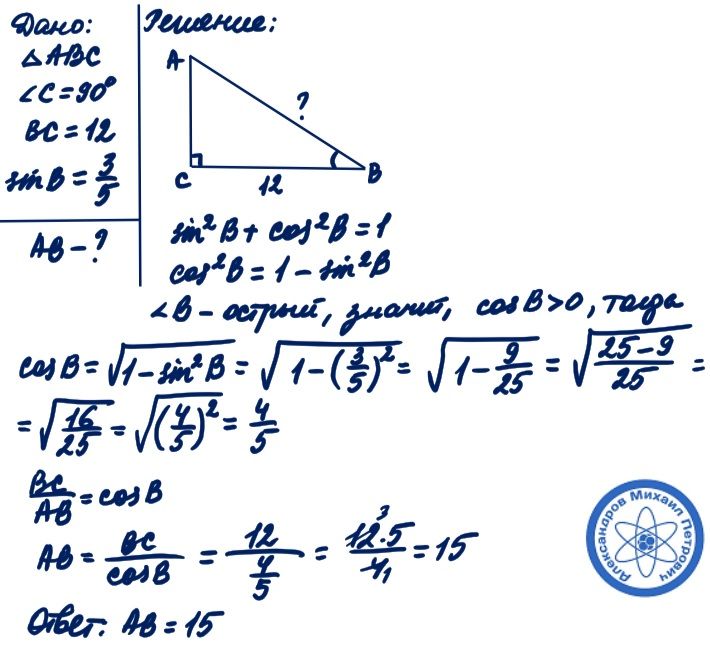 Дано:
△ABC
∠C = 90°
BC = 12
sin B = 3/5
AB - ?
Решение:
A
?
C
12
B
sin²B + cos²B = 1
cos²B = 1 - sin²B
∠B - острый, значит, cos B > 0, тогда
cos B = √(1 - sin²B) = √(1 - (3/5)²) = √(1 - 9/25) = √((25 - 9)/25) =
= √(16/25) = √((4/5)²) = 4/5
BC/AB = cos B
AB = BC/cos B = 12/(4/5) = 12³·5/4₁ = 15
Ответ: AB = 15
Александров Михаил Петрович